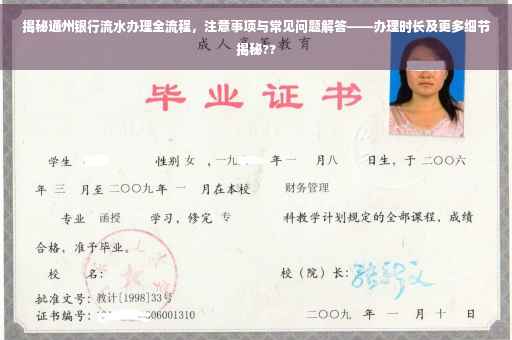 揭秘通州银行流水办理全流程，注意事项与常见问题解答——办理时长及更多细节
揭秘??
成人高等教育
毕业证书
学生 性别 女 ，一九 年 一 月八 日生，于 二〇〇六
年 三 月至 二〇〇九 年 一 月在本校 财务管理
专业 函授 学习，修完 专 科教学计划规定的全部课程，成绩
合格，准予毕业。
校 名： 校（院）长：
批准文号：教计[1998]33号
证书编号： 606001310 二〇〇九 年 一 月 十 日